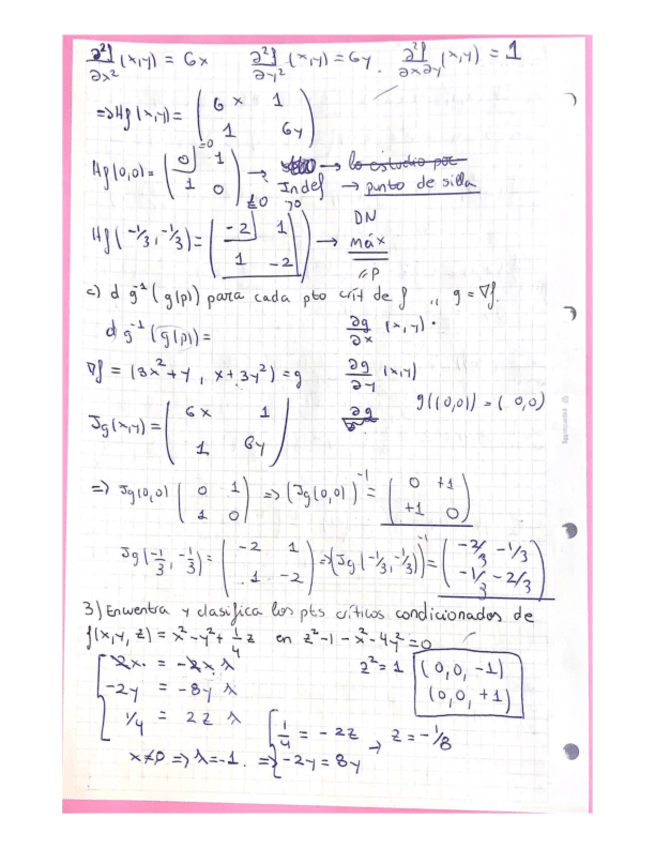 ∂²f/∂x² (x,y) = 6x   ∂²f/∂y² (x,y) = 6y.   ∂²f/∂x∂y (x,y) = 1
=> Hf(x,y) = ( 6x 1 ; 1 6y )
Hf(0,0) = ( 0 1 ; 1 0 ) =0 → → lo estudio por
Indef → punto de silla
Hf(-1/3, -1/3) = ( -2 1 ; 1 -2 ) ≤0 >0 → DN
máx
c) d g⁻¹(g(p)) para cada pto crít de f ,, g = ∇f.
d g⁻¹(g(p)) =   ∂g/∂x (x,y) ·
∇f = (3x²+y, x+3y²) = g   ∂g/∂y (x,y)
g((0,0)) = (0,0)
Jg(x,y) = ( 6x 1 ; 1 6y )   ∂g
=> Jg(0,0) ( 0 1 ; 1 0 ) => (Jg(0,0))⁻¹ = ( 0 +1 ; +1 0 )
Jg(-1/3, -1/3) = ( -2 1 ; 1 -2 ) => (Jg(-1/3, -1/3))⁻¹ = ( -2/3 -1/3 ; -1/3 -2/3 )
3) Encuentra y clasifica los pts críticos condicionados de
f(x,y,z) = x²-y²+1/4 z en z²-1-x²-4y²=0
2x = -2xλ   z²=1   (0,0,-1)
-2y = -8yλ   (0,0,+1)
1/4 = 2zλ   1/4 = -2z → z = -1/8
x≠0 => λ=-1. => -2y = 8y